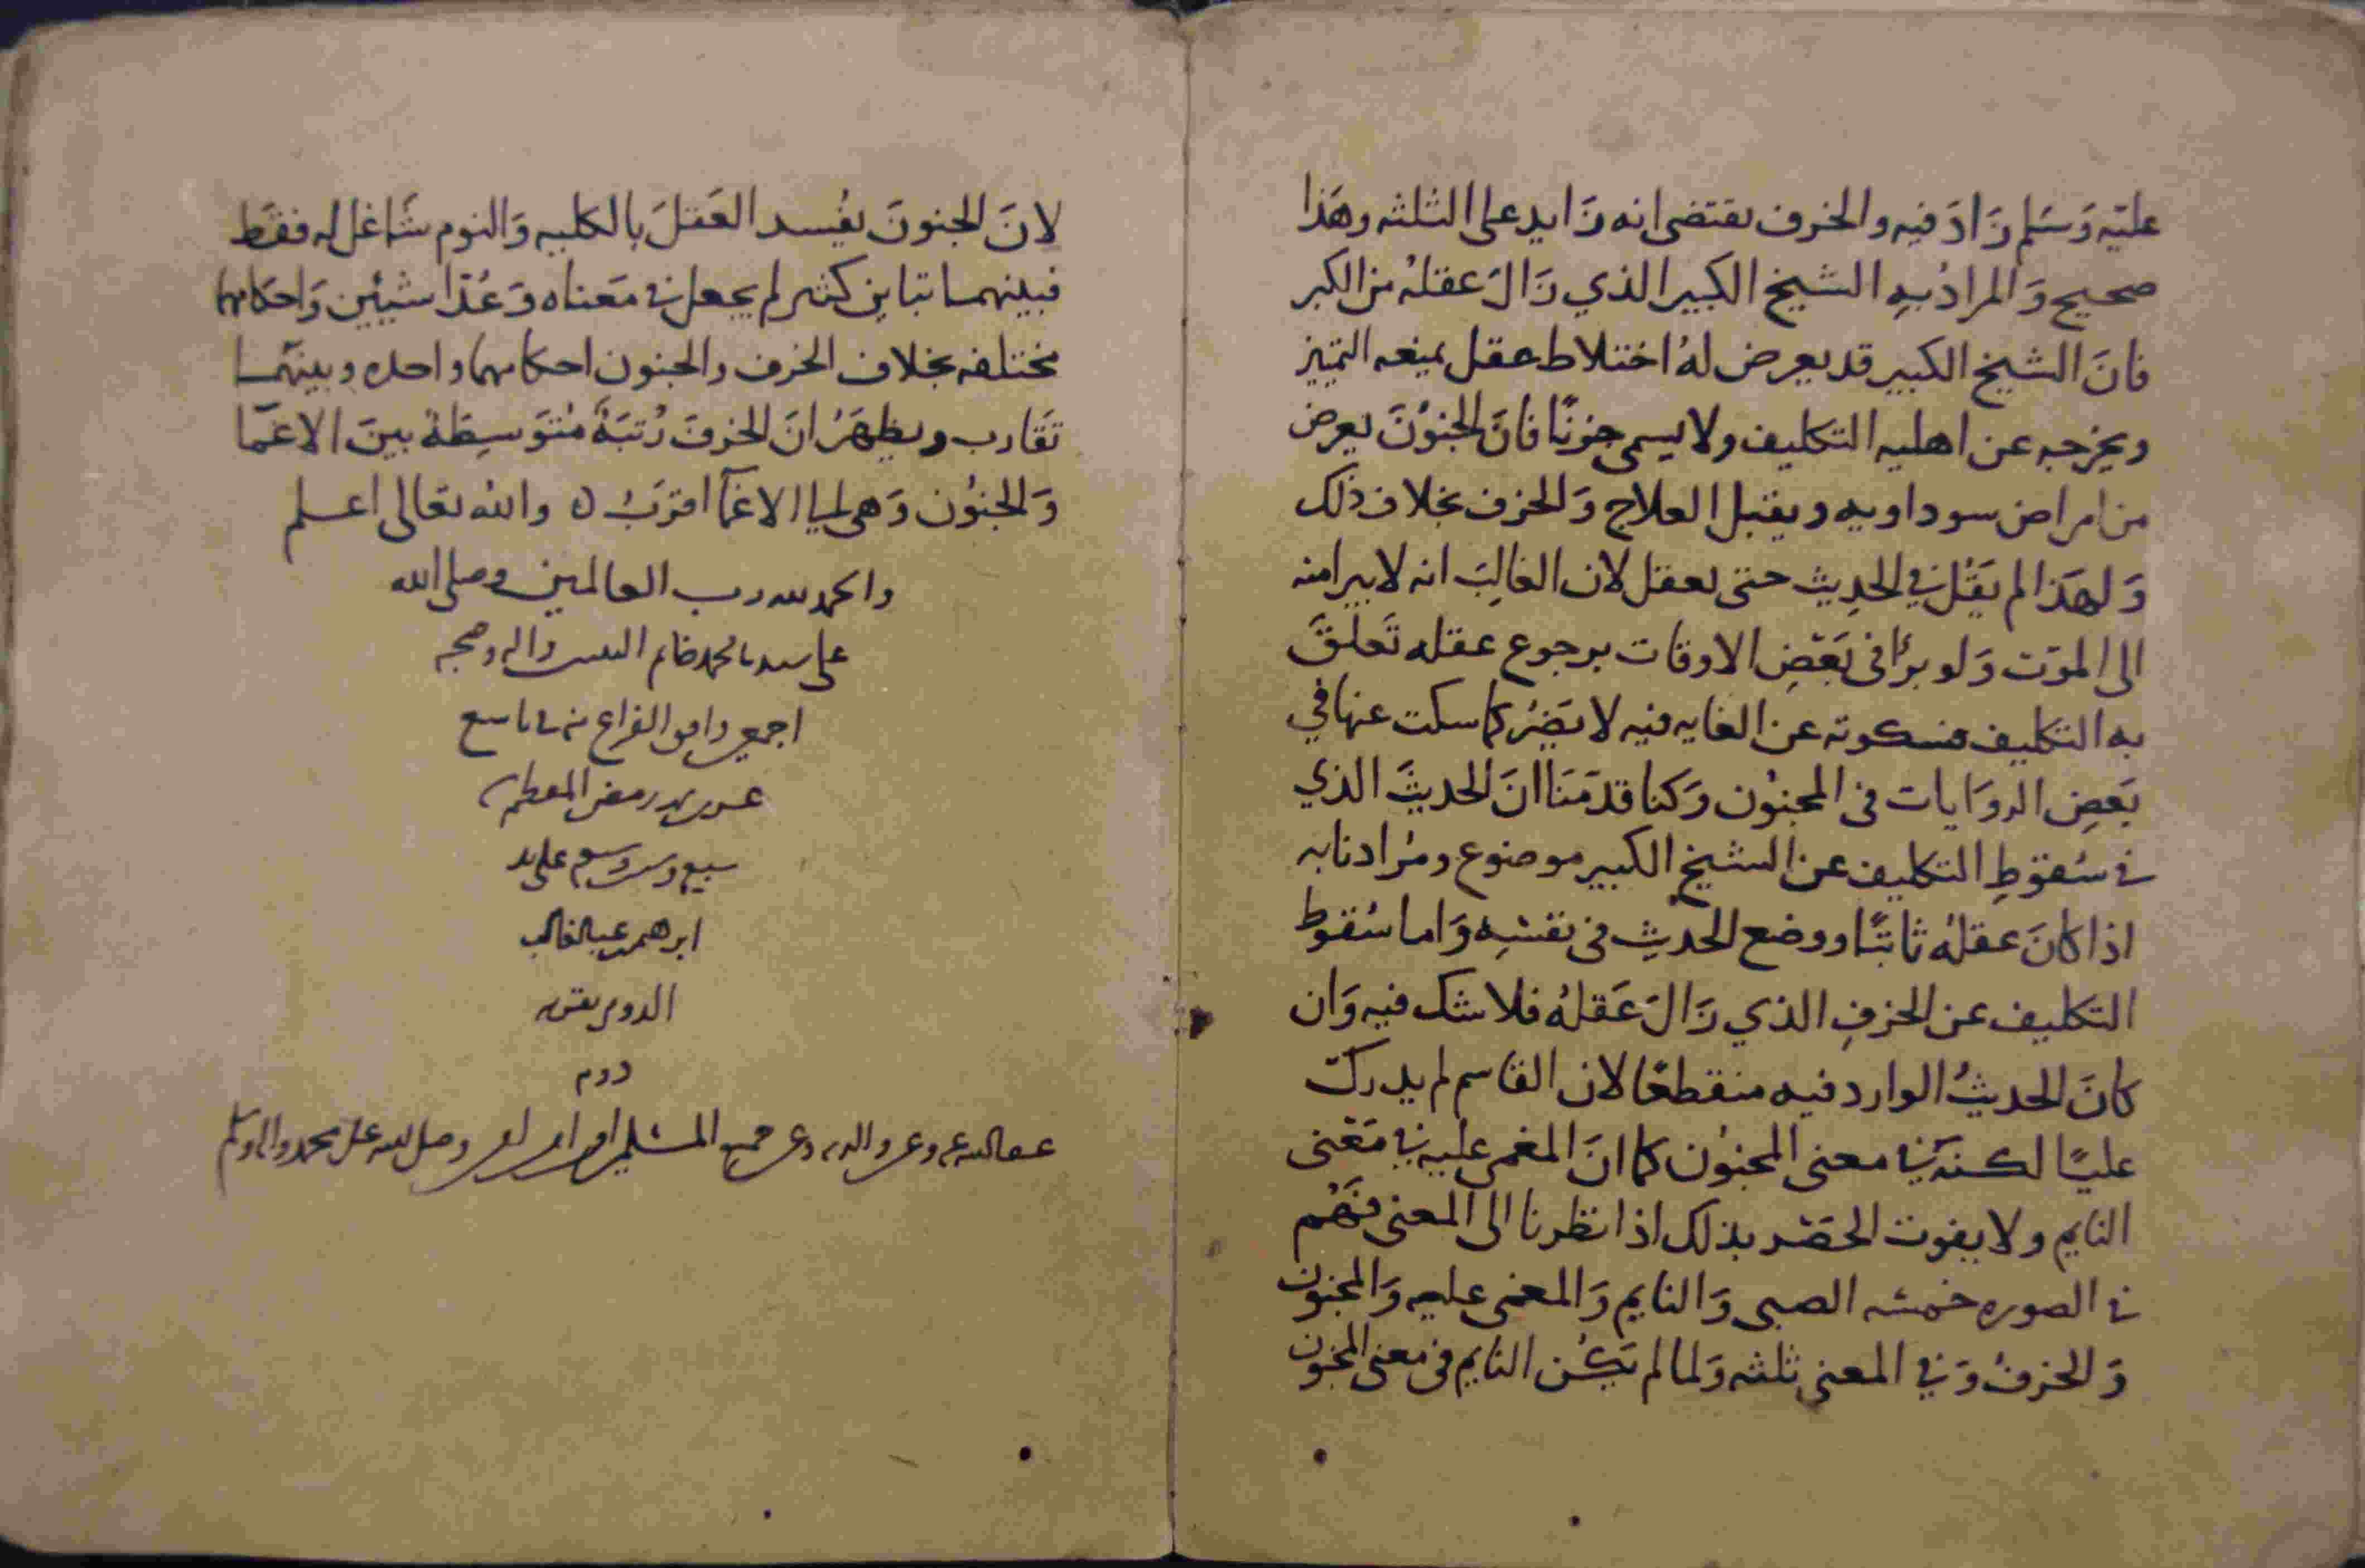 عليه وَسَلم زَادَ فيه والخرف يقتضى انه زَايد على الثلثه وهَذا
صحيح وَالمرادُ بهِ الشيخ الكبير الذي زَالَ عقلهُ من الكبر
فانَ الشيخ الكبير قد يعرض لهُ اختلاط عقل يمنعه التمييز
ويخرجه عن اهليه التكليف ولا يسمى جنونًا فانَ الجنوُنَ يعرض
من امراض سوداويه ويقبل العلاج وَالخرف بخلاف ذلك
وَلهَذا لم يَقُل في الحدِيث حتى يعقل لان الغالِبَ انه لا يبرا منه
الى الموَت وَلو برئ فى بَعَض الاوقات برجوع عقله تَعلقَ
به التكليف فسكوته عن الغايه فيه لا يَضِرُ كما سكت عنها في
بَعضِ الروَايات فى المجنوُن وَكنا قدمَنَا انَ الحديثَ الذي
في سُقوطِ التكليف عن الشيخ الكبير موضوع ومُرادنا به
اذا كانَ عقلهُ ثابتًا ووضع الحدِيث فى نفسِه وَاما سُقوط
التكليف عن الخرفِ الذي زَالَ عَقلهُ فلا شك فيه وَان
كانَ الحديثُ الوارد فيه منقطعًا لان القاسم لم يدرك
عليًا لكنه في معنى المجنوُن كما انَ المغمى عليه في مَعَنى
النايم ولا يفوت الحَصَر بذلك اذا نظرنا الى المعنى فهُم
في الصوره خمسه الصبى وَالنايم وَالمغمى عليه وَالمجنون
وَالخرفُ وَفي المعنى ثلثه وَلما لم يَكُن النايم فى معنى المجنون
لانَ الجنونَ يفُسد العَقلَ بالكليه وَالنوم شَاغل له فقَط
فبينهما تباين كثير لم يجعل في مَعناه وَعُدَّا شيئين وَاحكامهما
مختلفه بخلاف الخرف والجنون احكامهما واحده وبينهما
تَقارب ويظهَرُ انَ الخرفَ رُتبَةٌ مُتوَسِطَة بينَ الاغمَا
وَالجنوُن وَهى الى الاغمآ اقرَبُ ه والله تعالى اعلم
والحمد لله رب العالمين وصلى الله
على سيدنا محمد خاتم النبيين واله وصحبه
اجمعين وافق الفراغ منه في تاسع
عشرين شهر رمضان المعظم
سنة على يد
ابرهيم
عفا الله عنه وعن والديه وعن جميع المسلمين امين امين امين وصلى الله على محمد واله وسلم